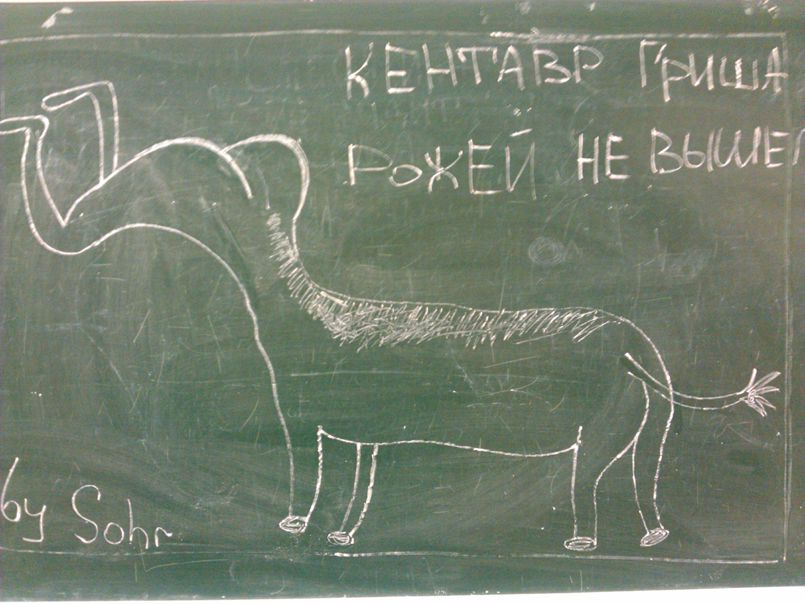 КЕНТАВР ГРИША
РОЖЕЙ НЕ ВЫШЕЛ
by Sohr